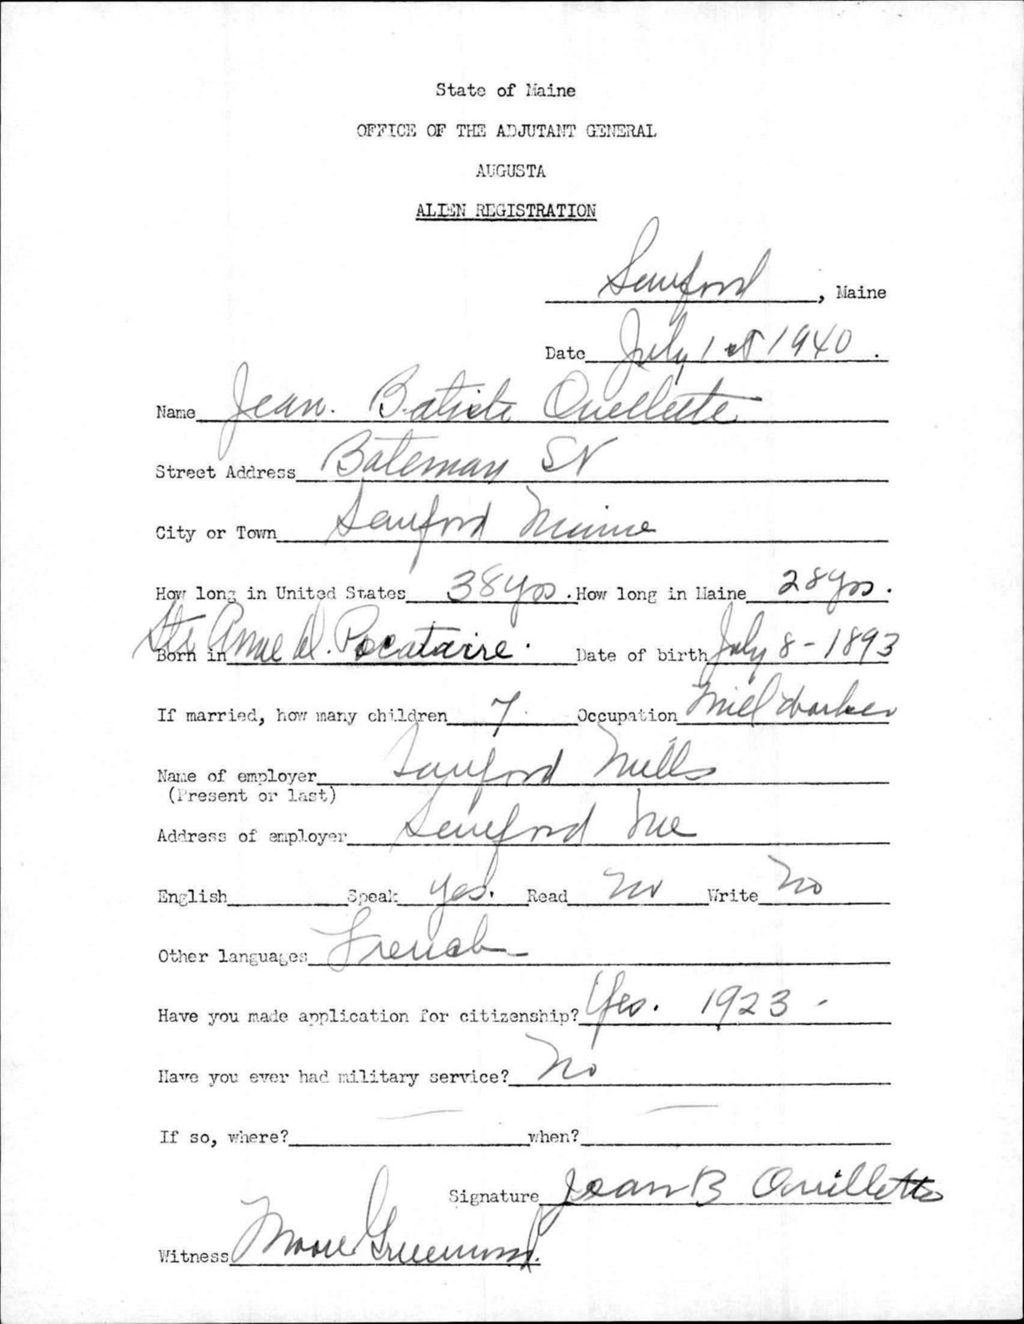 State of Maine
OFFICE OF THE ADJUTANT GENERAL
AUGUSTA
ALIEN REGISTRATION
Sanford, Maine
Date July 1st 1940.
Name Jean. Batiste Ouellette
Street Address Bateman St
City or Town Sanford Maine
How long in United States 38 yrs. How long in Maine 28 yrs.
Born in Ste Anne d. Pocataire. Date of birth July 8-1893
If married, how many children 7 Occupation Mill Worker
Name of employer Sanford Mills
(Present or last)
Address of employer Sanford Me
English Speak yes. Read No Write No
Other languages French
Have you made application for citizenship? Yes. 1923-
Have you ever had military service? No
If so, where? — when? —
Signature Jean B Ouillette
Witness Greenwood.